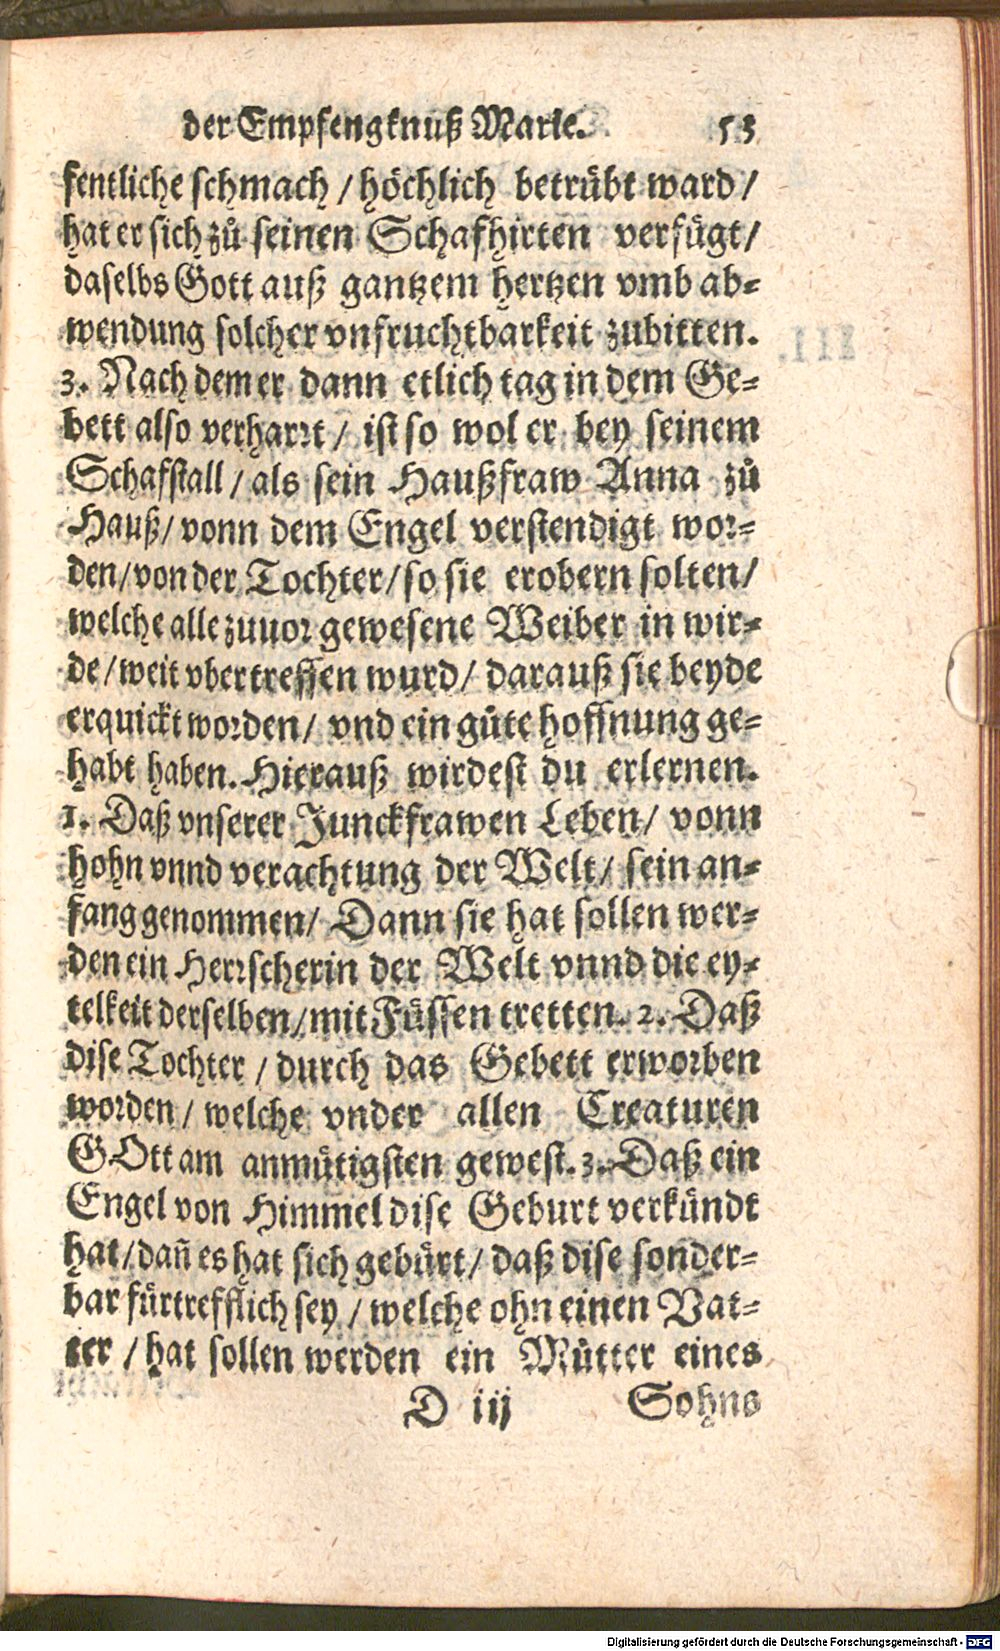 der Empfengknuß Marie. 53
fentliche schmach / höchlich betrübt ward /
hat er sich zů seinen Schafhirten verfügt /
daselbs Gott auß gantzem hertzen vmb ab-
wendung solcher vnfruchtbarkeit zubitten.
3. Nach dem er dann etlich tag in dem Ge-
bett also verharrt / ist so wol er bey seinem
Schafstall / als sein Haußfraw Anna zů
Hauß / vonn dem Engel verstendigt wor-
den / von der Tochter / so sie erobern solten /
welche alle zuuor gewesene Weiber in wir-
de / weit vbertreffen wurd / darauß sie beyde
erquickt worden / vnd ein gůte hoffnung ge-
habt haben. Hierauß wirdest du erlernen.
1. Daß vnserer Junckfrawen Leben / vonn
hohn vnnd verachtung der Welt / sein an-
fang genommen / Dann sie hat sollen wer-
den ein Herrscherin der Welt vnnd die ey-
telkeit derselben / mit Füssen tretten. 2. Daß
dise Tochter / durch das Gebett erworben
worden / welche vnder allen Creaturen
GOtt am anmütigsten gewest. 3. Daß ein
Engel von Himmel dise Geburt verkündt
hat / dañ es hat sich gebürt / daß dise sonder-
bar fürtrefflich sey / welche ohn einen Vat-
ter / hat sollen werden ein Můtter eines
D iij Sohns
Digitalisierung gefördert durch die Deutsche Forschungsgemeinschaft - DFG